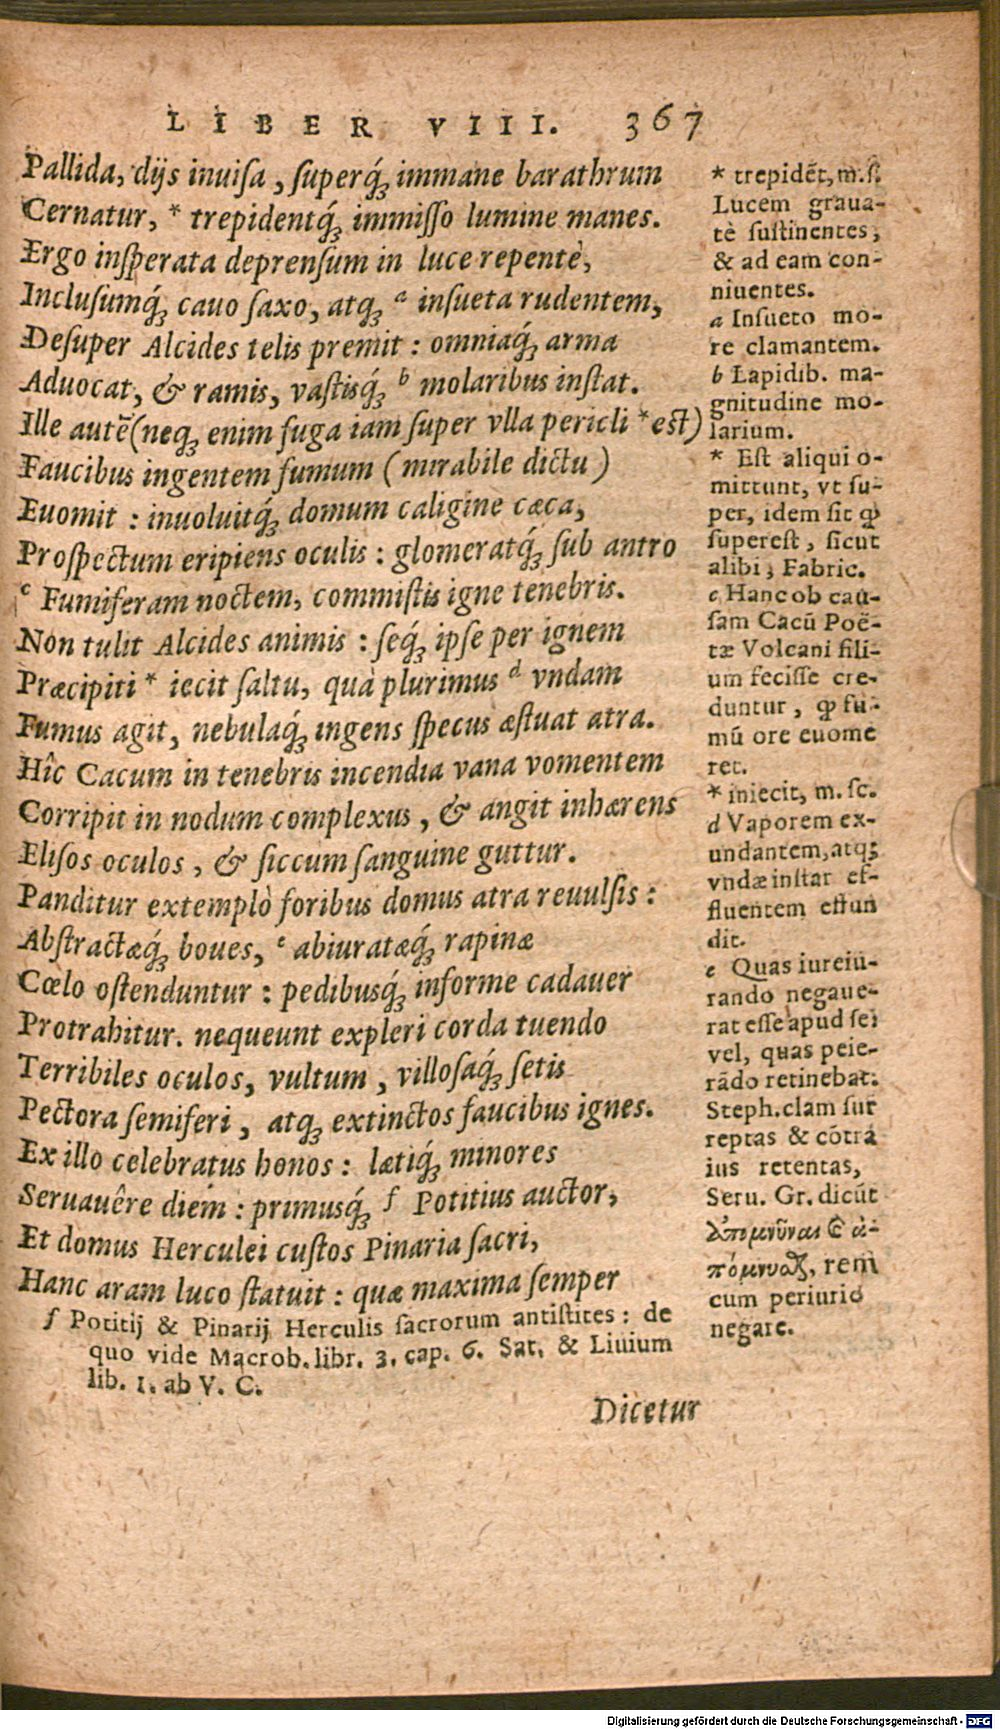 LIBER VIII. 367
Pallida, dijs inuiſa, ſuperq́ꝫ immane barathrum
Cernatur, * trepidentq́ꝫ immiſſo lumine manes.
Ergo inſperata deprenſum in luce repentè,
Incluſumq́ꝫ cauo ſaxo, atqꝫ ᵃ inſueta rudentem,
Deſuper Alcides telis premit : omniaq́ꝫ arma
Aduocat, & ramis, vaſtisq́ꝫ ᵇ molaribus inſtat.
Ille autē (neqꝫ enim fuga iam ſuper vlla pericli * eſt)
Faucibus ingentem fumum (mirabile dictu)
Euomit : inuoluitq́ꝫ domum caligine cæca,
Proſpectum eripiens oculis : glomeratq́ꝫ ſub antro
ᶜ Fumiferam noctem, commiſtis igne tenebris.
Non tulit Alcides animis : ſeq́ꝫ ipſe per ignem
Præcipiti * iecit ſaltu, quà plurimus ᵈ vndam
Fumus agit, nebulaq́ꝫ ingens ſpecus æſtuat atra.
Hîc Cacum in tenebris incendia vana vomentem
Corripit in nodum complexus, & angit inhærens
Eliſos oculos, & ſiccum ſanguine guttur.
Panditur extemplò foribus domus atra reuulſis :
Abſtractæq́ꝫ boues, ᵉ abiuratæq́ꝫ rapinæ
Cœlo oſtenduntur : pedibusq́ꝫ informe cadauer
Protrahitur. nequeunt expleri corda tuendo
Terribiles oculos, vultum, villoſaq́ꝫ ſetis
Pectora ſemiferi, atqꝫ extinctos faucibus ignes.
Ex illo celebratus honos : lætiq́ꝫ minores
Seruauêre diem : primusq́ꝫ ᶠ Potitius auctor,
Et domus Herculei cuſtos Pinaria ſacri,
Hanc aram luco ſtatuit : quæ maxima ſemper
f Potitij & Pinarij Herculis ſacrorum antiſtites : de
quo vide Macrob. libr. 3. cap. 6. Sat. & Liuium
lib. 1. ab V. C.
Dicetur
* trepidēt, m.ſ.
Lucem graua-
tè ſuſtinentes,
& ad eam con-
niuentes.
a Inſueto mo-
re clamantem.
b Lapidib. ma-
gnitudine mo-
larium.
* Eſt aliqui o-
mittunt, vt ſu-
per, idem ſit ꝙ
ſupereſt, ſicut
alibi, Fabric.
c Hanc ob cau-
ſam Cacū Poë-
tæ Volcani fili-
um feciſſe cre-
duntur, ꝙ fu-
mū ore euome
ret.
* iniecit, m. ſc.
d Vaporem ex-
undantem, atqꝫ
vndæ inſtar ef-
fluentem effun
dit.
e Quas iureiu-
rando negaue-
rat eſſe apud ſe:
vel, quas peie-
rādo retinebat.
Steph. clam ſur
reptas & cōtra
ius retentas,
Seru. Gr. dicūt
ἀπομνῦναι & ἀ-
πόμνυσθαι, rem
cum periurio
negare.
Digitalisierung gefördert durch die Deutsche Forschungsgemeinschaft - DFG